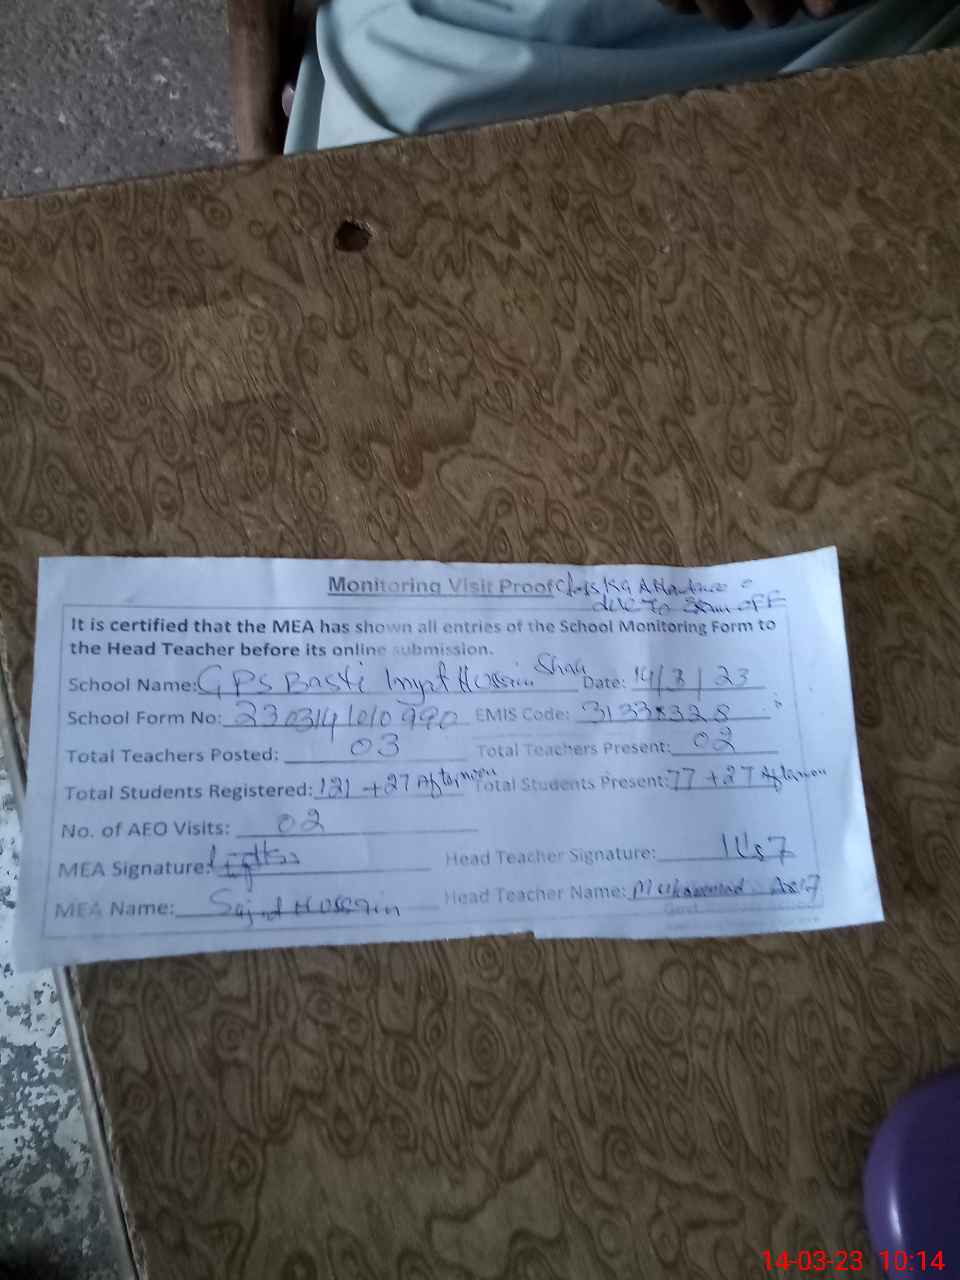 Monitoring Visit Proof Class KG Attendance
due to Exam OFF
It is certified that the MEA has shown all entries of the School Monitoring Form to
the Head Teacher before its online submission.
School Name: GPS Basti Inyat Hussain Shah Date: 14/3/23
School Form No: EMIS Code: 31338328
Total Teachers Posted: 03 Total Teachers Present: 02
Total Students Registered: 121 +27 Afternoon Total Students Present: 77 +27 Afternoon
No. of AEO Visits: 02
MEA Signature: Head Teacher Signature:
MEA Name: Sajid Hussain Head Teacher Name: Muhammad
14-03-23 10:14